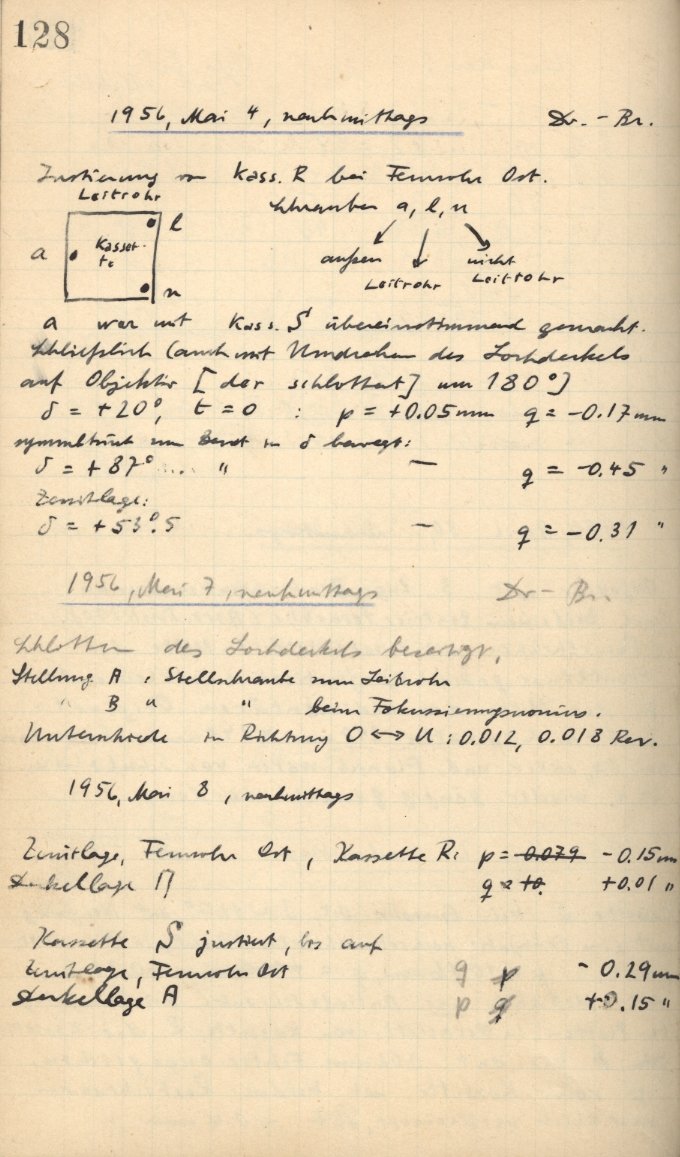 128
1956, Mai 4, nachmittags Dr. - Br.
Justierung von Kass. R bei Fernrohr Ost.
Leitrohr
Schrauben a, l, n
l
a
Kasset-
te
außen
Leitrohr
nicht
Leitrohr
n
a war mit Kass. S übereinstimmend gemacht.
Schließlich (auch mit Umdrehen des Lochdeckels
auf Objektiv [der schlottert] um 180°)
δ = +20°, t = 0 : p = +0.05 mm q = -0.17 mm
symmetrisch um in δ bewegt:
δ = +87° .... " — q = -0.45 "
Zenitlage:
δ = +53°.5 — q = -0.31 "
1956, Mai 7, nachmittags Dr - Br.
Schlottern des Lochdeckels beseitigt,
Stellung A : Stellschraube zum Leitrohr
" B " " beim Fokussierungsnonius.
Unterschiede in Richtung O ↔ U : 0.012, 0.018 Rev.
1956, Mai 8, nachmittags
Zenitlage, Fernrohr Ost, Kassette R: p = 0.079 - 0.15 mm
Deckellage q = +0. +0.01 "
Kassette S justiert, bis auf
Zenitlage, Fernrohr Ost q p - 0.29 mm
Deckellage A p q +0.15 "